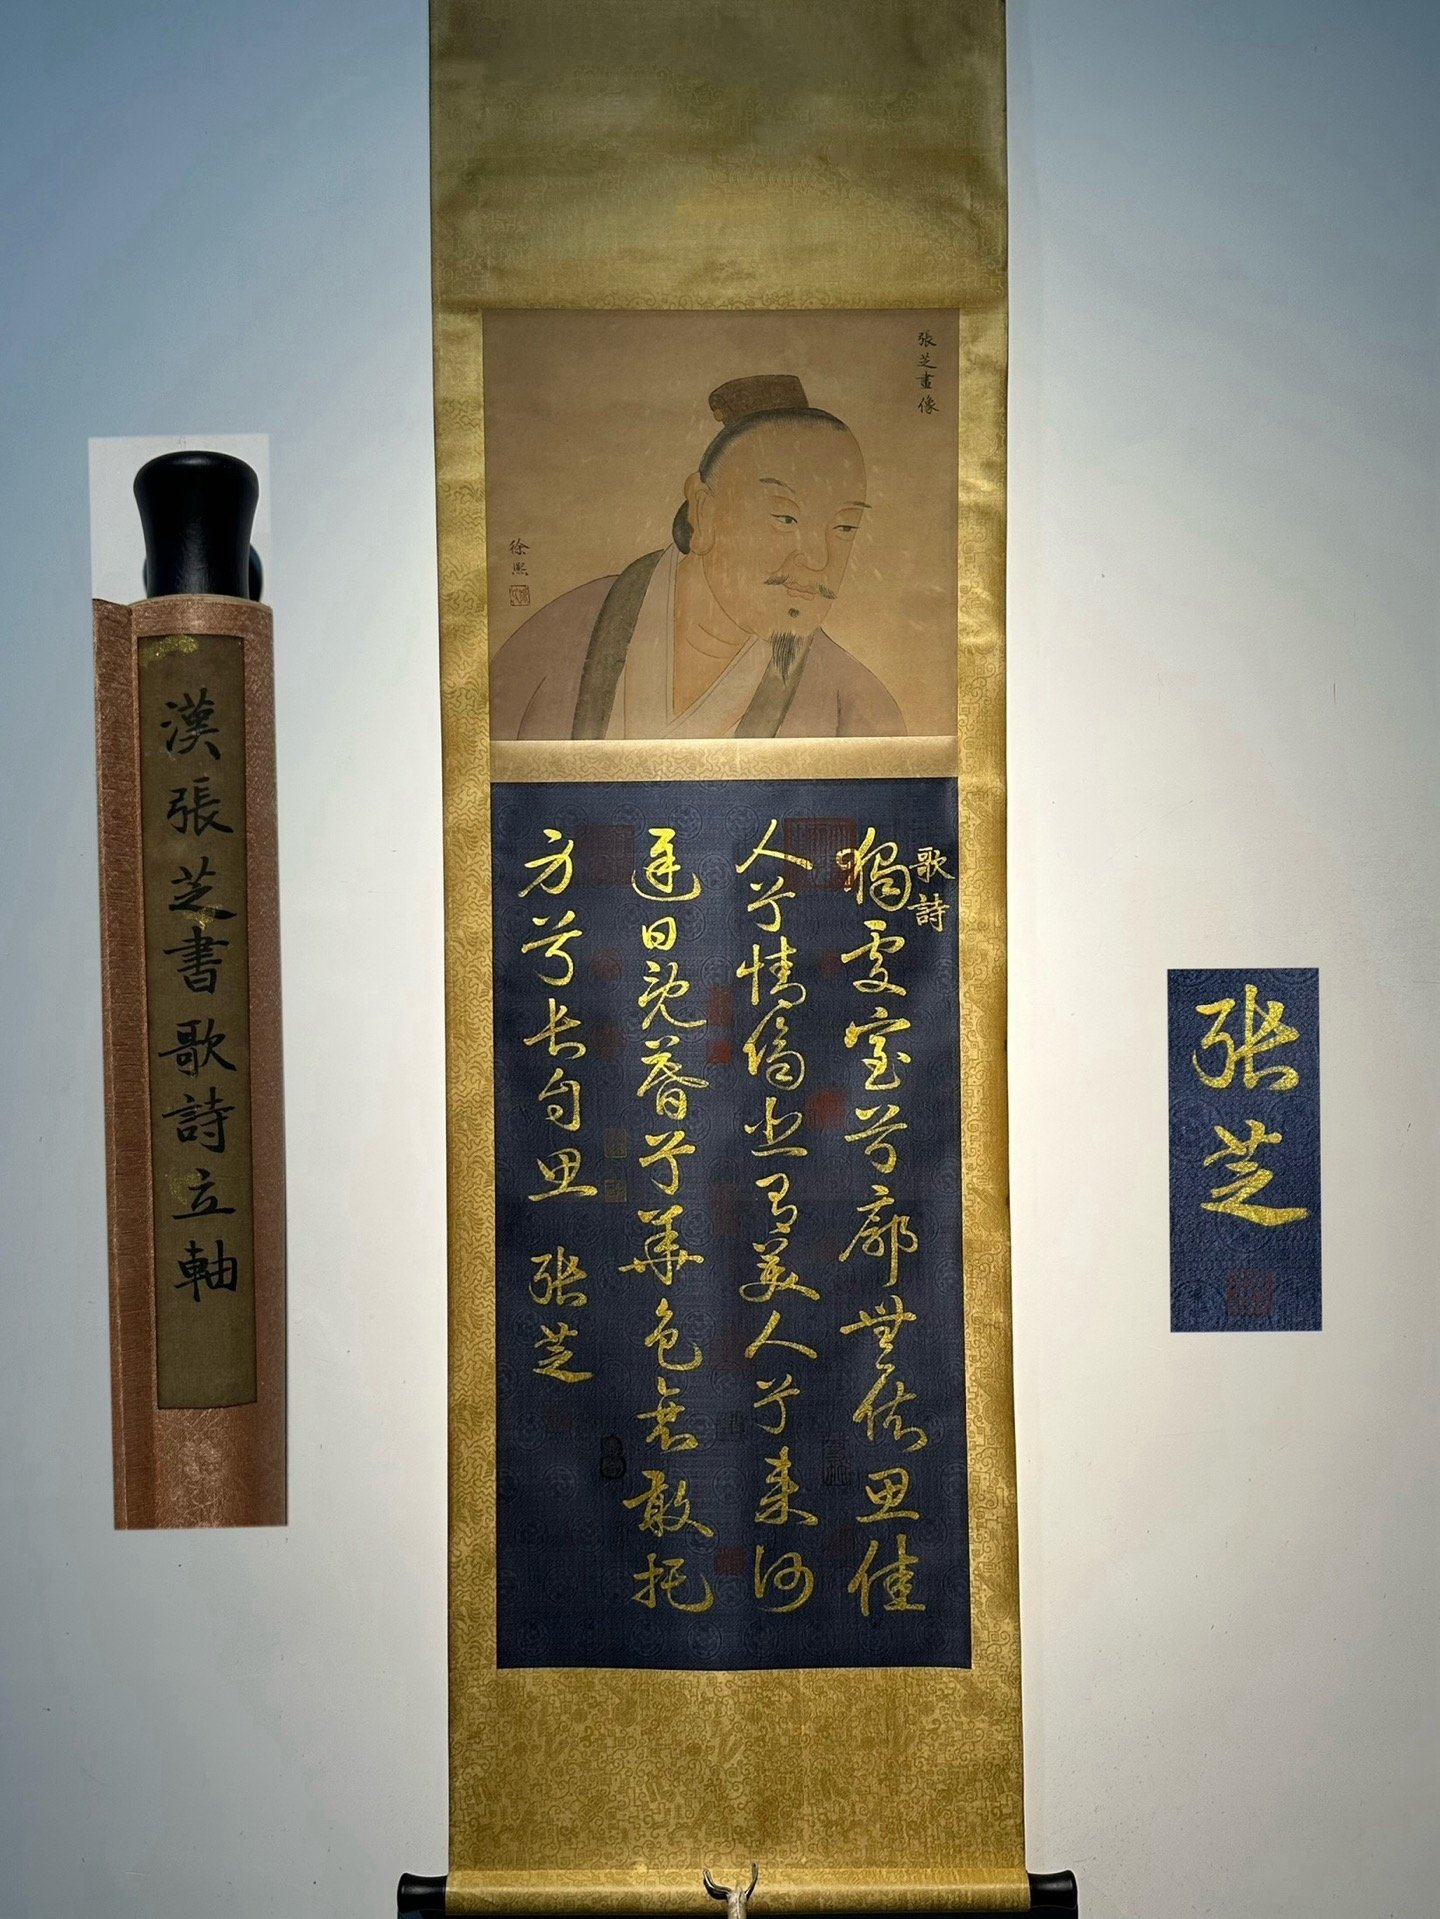 漢張芝書歌詩立軸
張芝畫像
徐熙
歌詩
獨處室兮廓無依思佳
人兮情傷悲有美人兮來何
遲日既暮兮華色衰敢托
方兮长自思 张芝
张芝